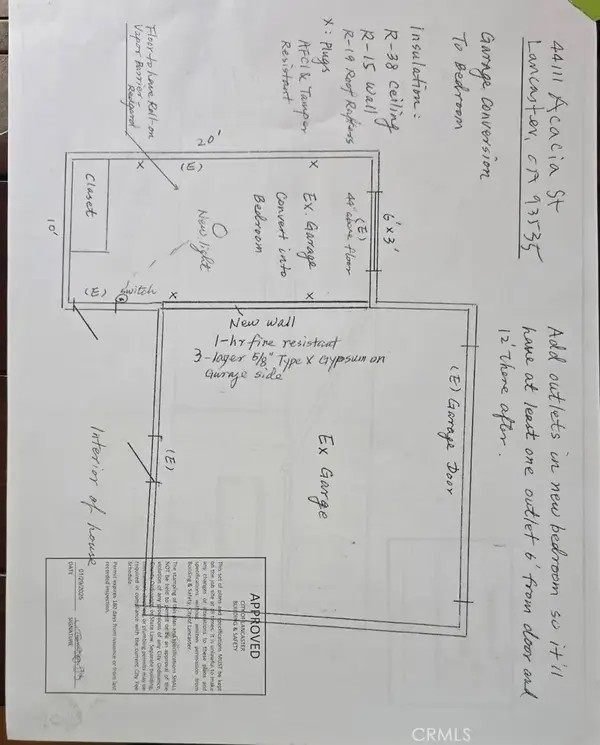 44111 Acacia St
Lancaster, CA 93535
Garage Conversion
To Bedroom
Insulation:
R-38 Ceiling
R-15 Wall
R-19 Roof Rafters
X: Plugs
AFCI & Tamper
Resistant
Floor to have Roll-on
Vapor Barrier -
Redgard
20'
10'
6'x3'
(E)
44" above floor
(E)
X
X
Ex. Garage
Convert into
Bedroom
New light
Closet
(E)
switch
X
X
New wall
1-hr fire resistant
3-layer 5/8" Type X Gypsum on
Garage side
Add outlets in new bedroom so it'll
have at least one outlet 6' from door and
12' there after.
(E) Garage Door
Ex Garge
(E)
Interior of house
APPROVED
CITY OF LANCASTER
BUILDING & SAFETY
This set of plans and specifications MUST be kept
on the job site at all times. It is unlawful to make
any changes or deviations to these plans and
specifications without written permission from
Building & Safety, City of Lancaster.
The stamping of this plan and specifications SHALL
NOT be held to permit or be an approval of the
violation of any provisions of any City Ordinance,
State Law. Separate building,
or plumbing permits may be
required in compliance with the current City Fee
Schedule.
Permit expires 180 days from issuance or from last
recorded inspection.
01/29/2025
DATE
SIGNATURE
CRMLS